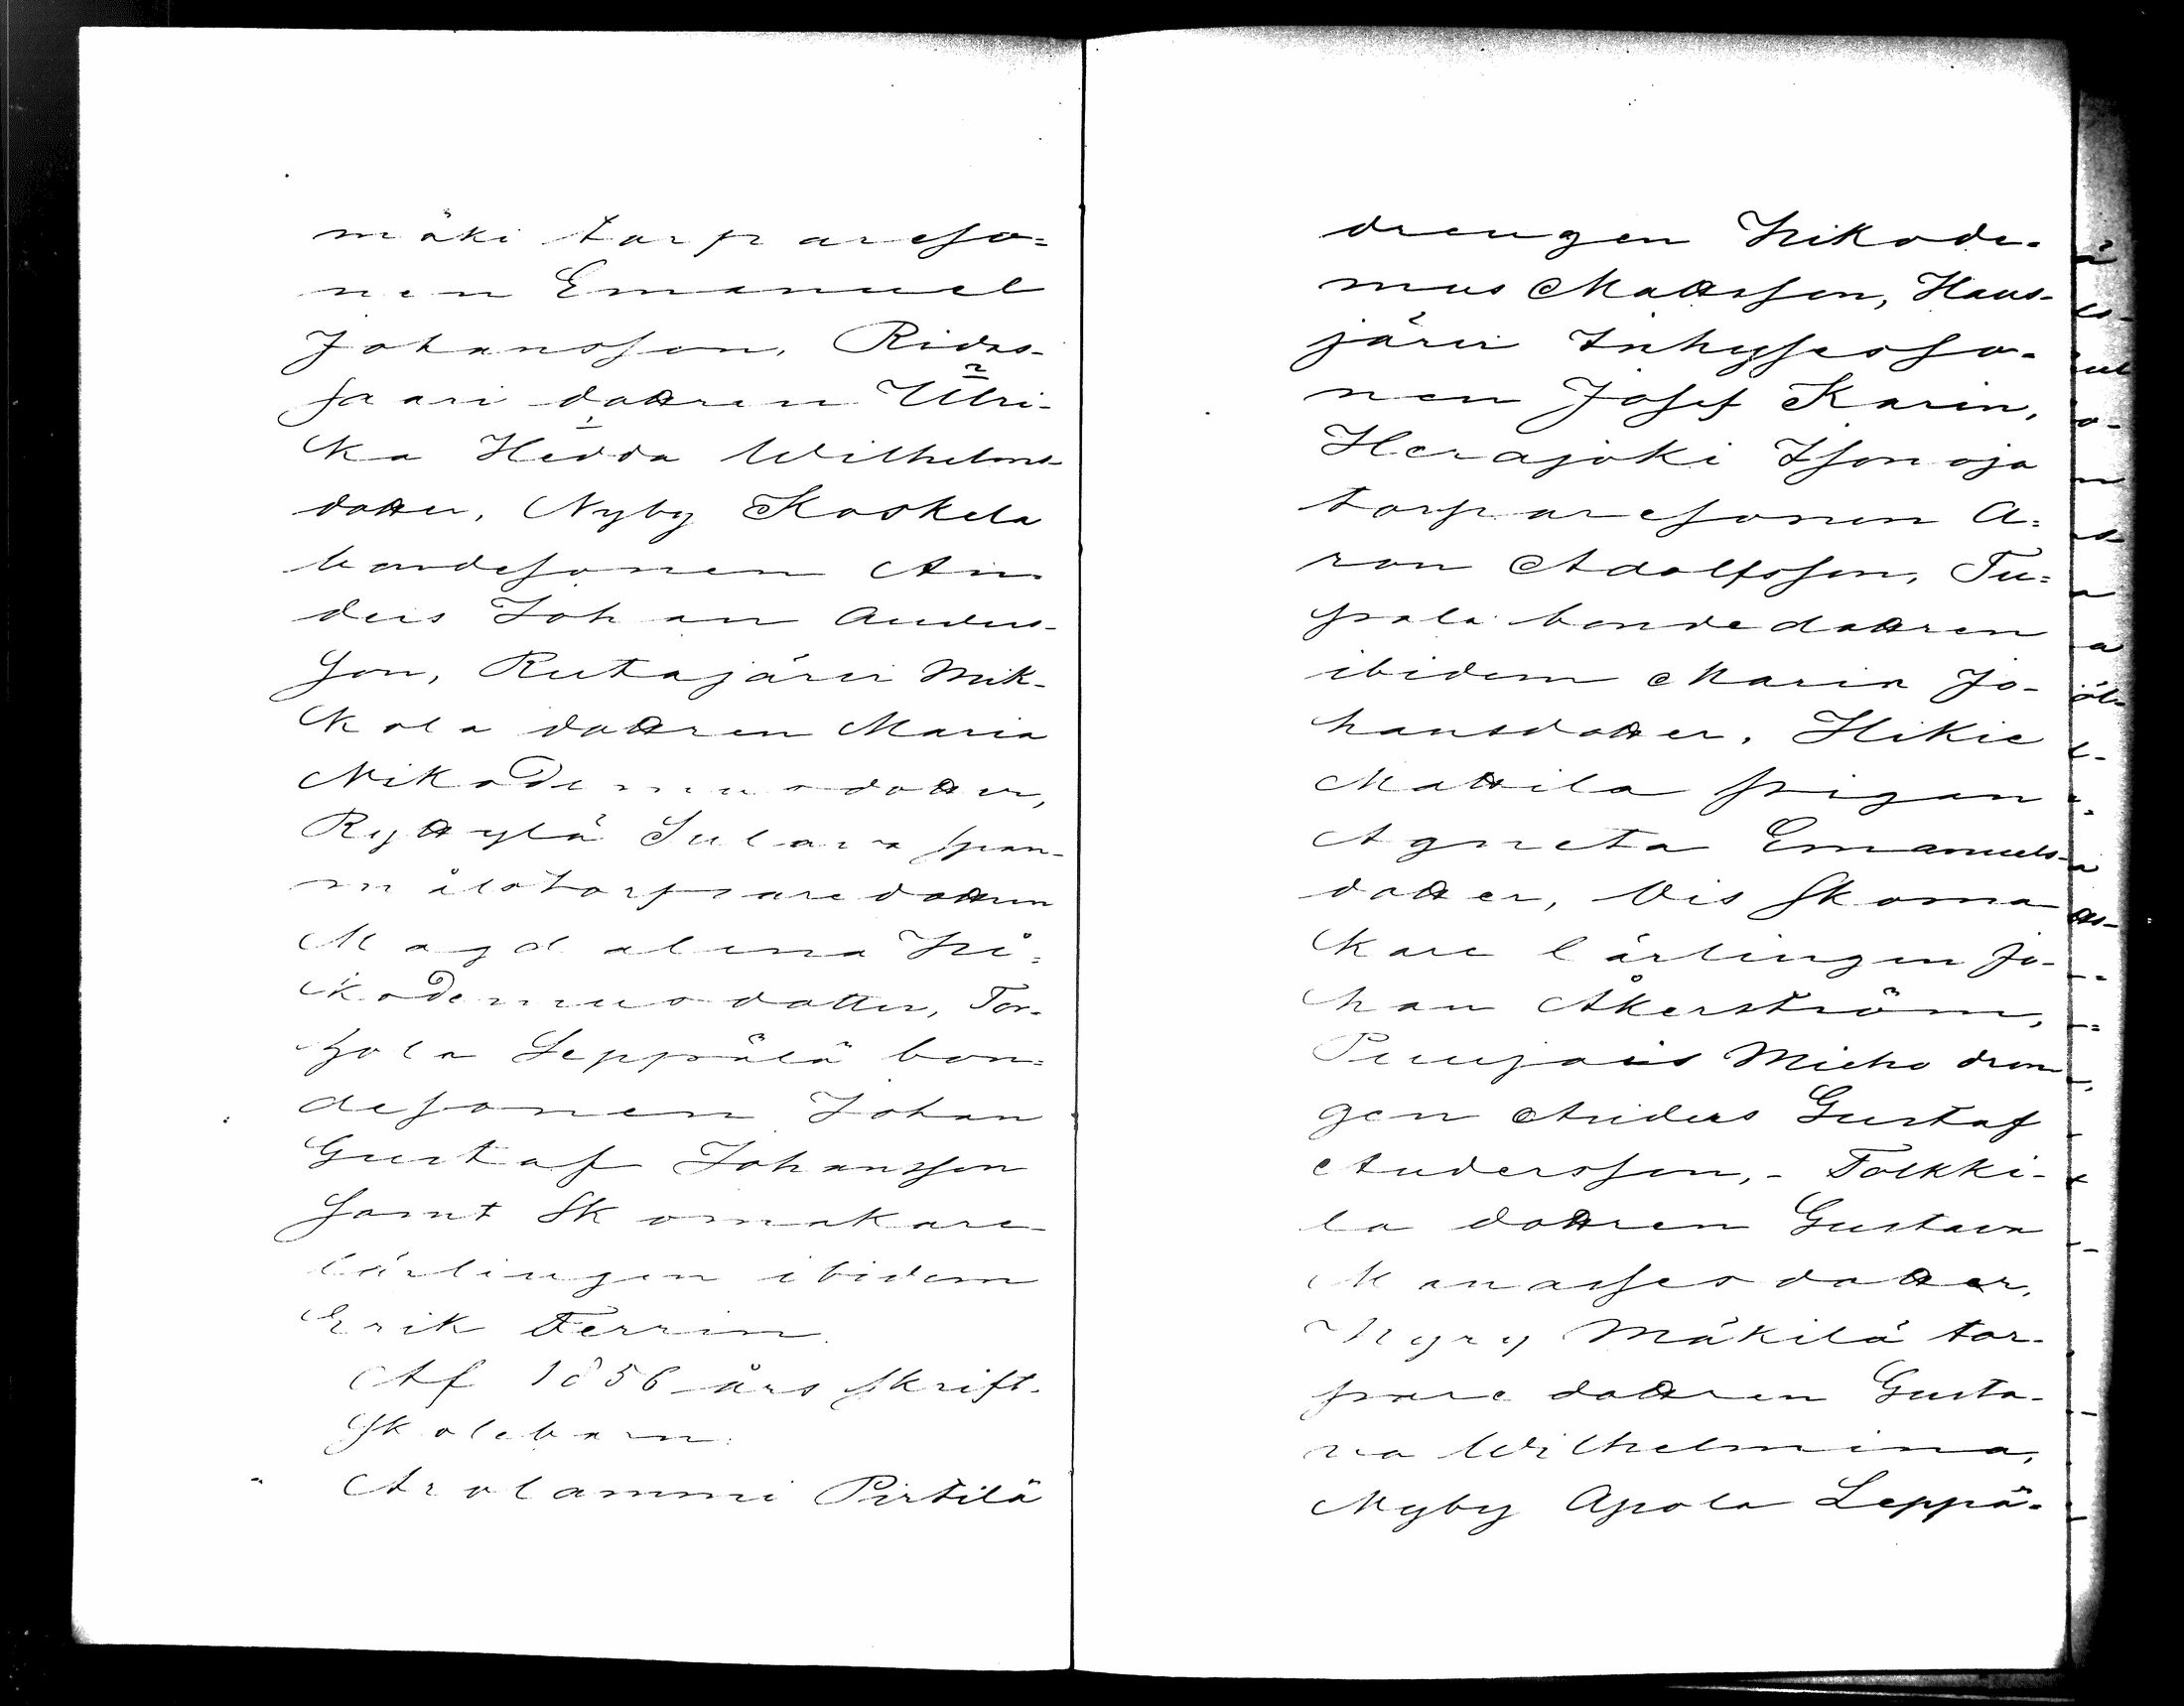 mäki torpareso=
nen Emanuel
Johansson, Ridas-
saari dottren Ulri-
ka Hedda Wilhelms-
dotter, Nyby Koskela
bondesonen An-
ders Johan Anders-
son, Rutajärvi Mik-
kola dottren Maria
Nikodemusdotter,
Ryttylä Sulava span-
målstorparedottren
Magdalena Ni=
kodemusdotter, Tor-
hola Leppälä bon=
desonen Johan
Gustaf Johansson
samt Skomakare
lärlingen ibidem
Erik Ferrin.
Af 1856 års skrift-
skolebarn:
Arolammi Pirtilä
drengen Nikode-
mus Mattsson, Haus-
järvi Inhysesso-
nen Josef Karin,
Herajoki Isonoja
torparesonen A=
ron Adolfsson, Tu=
pala bondedottren
ibidem Maria Jo-
hansdotter, Hikie
Mattila pigan
Agneta Emanuels-
dotter, Vis skoma
kare lärlingen Jo-
han Åkerström,
Puujais Mieho dren
gen Anders Gustaf
Andersson,- Tolkki-
la dottren Gustava
Manassesdotter,
Nyry Mäkilä tor-
pare dottren Gusta-
va Wilhelmina,
Nyby Apola Leppä-